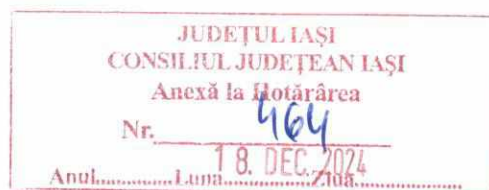 JUDEȚUL IAȘI
CONSILIUL JUDEȚEAN IAȘI
Anexă la Hotărârea
Nr. 464
18. DEC. 2024
Anul............Luna............Ziua............